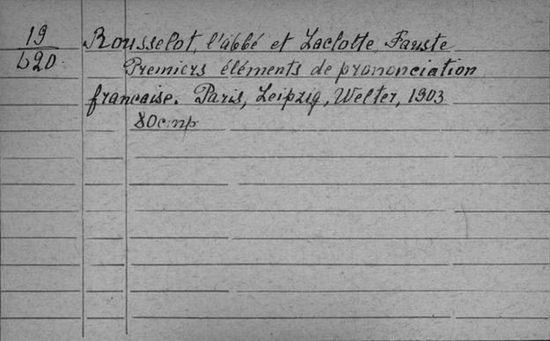 19
620
Rousselot, l'abbé et Laclotte, Fauste
Premiers éléments de prononciation
française. Paris, Leipzig, Welter, 1903